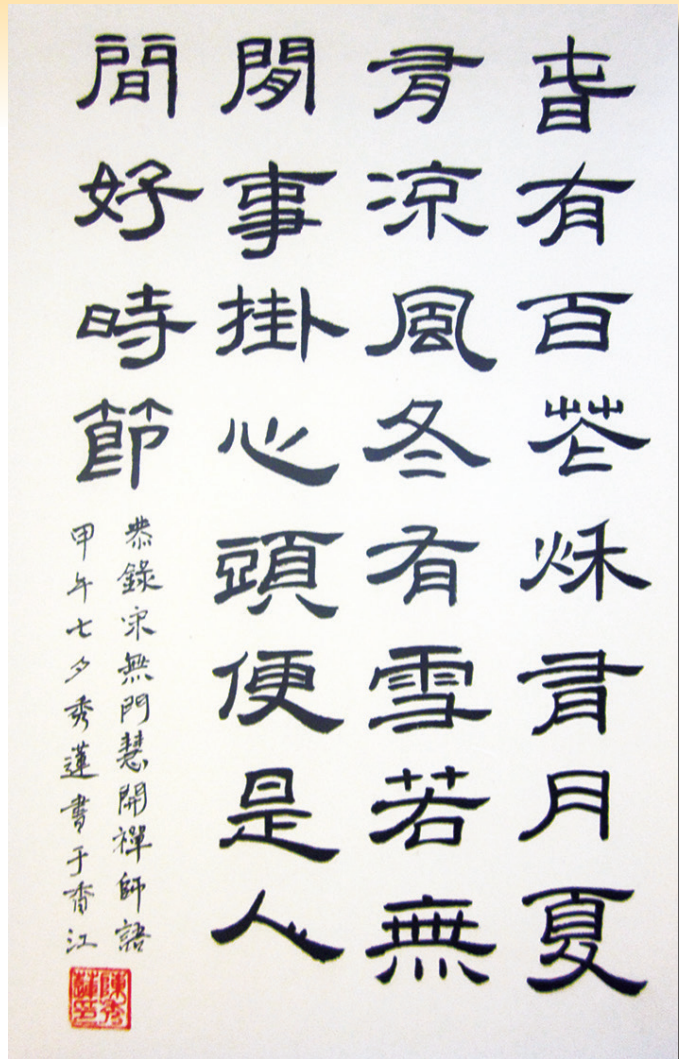 春有百花秋有月夏
有涼風冬有雪若無
閒事掛心頭便是人
間好時節
恭錄宋無門慧開禪師語
甲午七夕秀蓮書于香江
陳秀蓮印